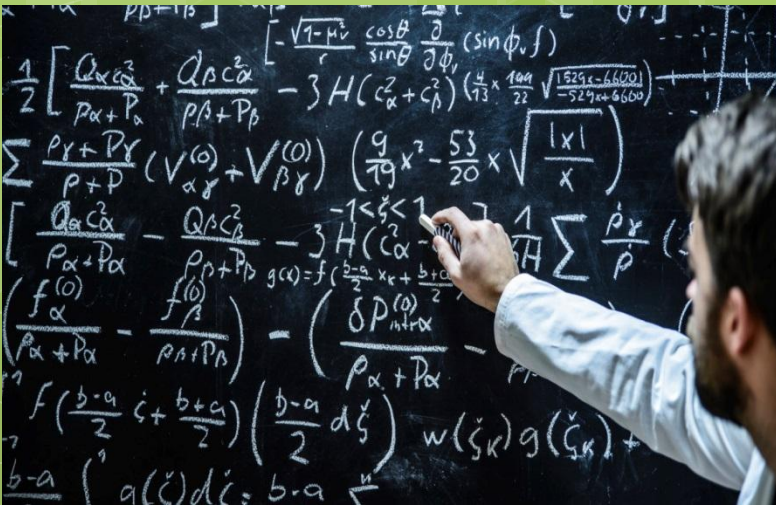 [-√(1-μ²ᵥ)/r cosθ/sinθ ∂/∂ϕᵥ (sinϕᵥ f)
1/2 [Qα c²α/(ρα+Pα) + Qβ c²α/(ρβ+Pβ) - 3H(c²α+c²β) (4/13 x 199/22 √((1529x-6600)/(-529x+6600)))
Σ (ργ+Pγ)/(ρ+P) (V⁽⁰⁾αγ + V⁽⁰⁾βγ) (9/19 x² - 53/20 x √(|x|/x))
-1<ξ̌<1
[Qα c²α/(ρα+Pα) - Qβ c²β/(ρβ+Pβ) - 3H(c²α - ] Σ ρ̇γ/ρ̇ (
g(x)=f((b-a)/2 xₖ + (b+a)/2
(f⁽⁰⁾α/(ρα+Pα) - f⁽⁰⁾β/(ρβ+Pβ)) - (δP⁽⁰⁾intrα/(ρα+Pα) -
f((b-a)/2 ξ̌ + (b+a)/2)((b-a)/2 dξ̌) w(ξ̌ₖ)g(ξ̌ₖ) +
b-a g(ξ̌)dξ̌ b-a